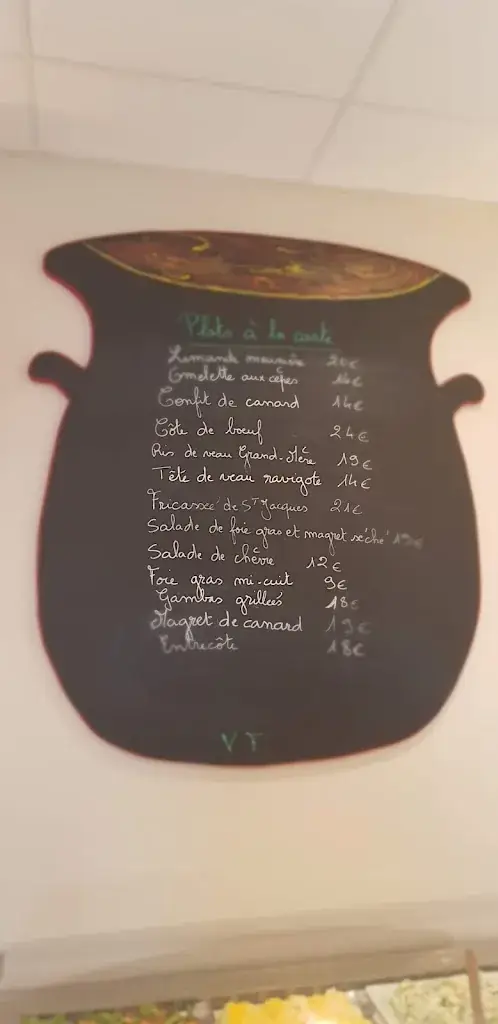 Plats à la carte
Limande meunière 20€
Omelette aux cèpes 14€
Confit de canard 14€
Côte de boeuf 24€
Ris de veau Grand-Mère 19€
Tête de veau ravigote 14€
Fricassée de St Jacques 21€
Salade de foie gras et magret séché
Salade de chèvre 12€
Foie gras mi-cuit 9€
Gambas grillées 18€
Magret de canard 19€
Entrecôte 18€